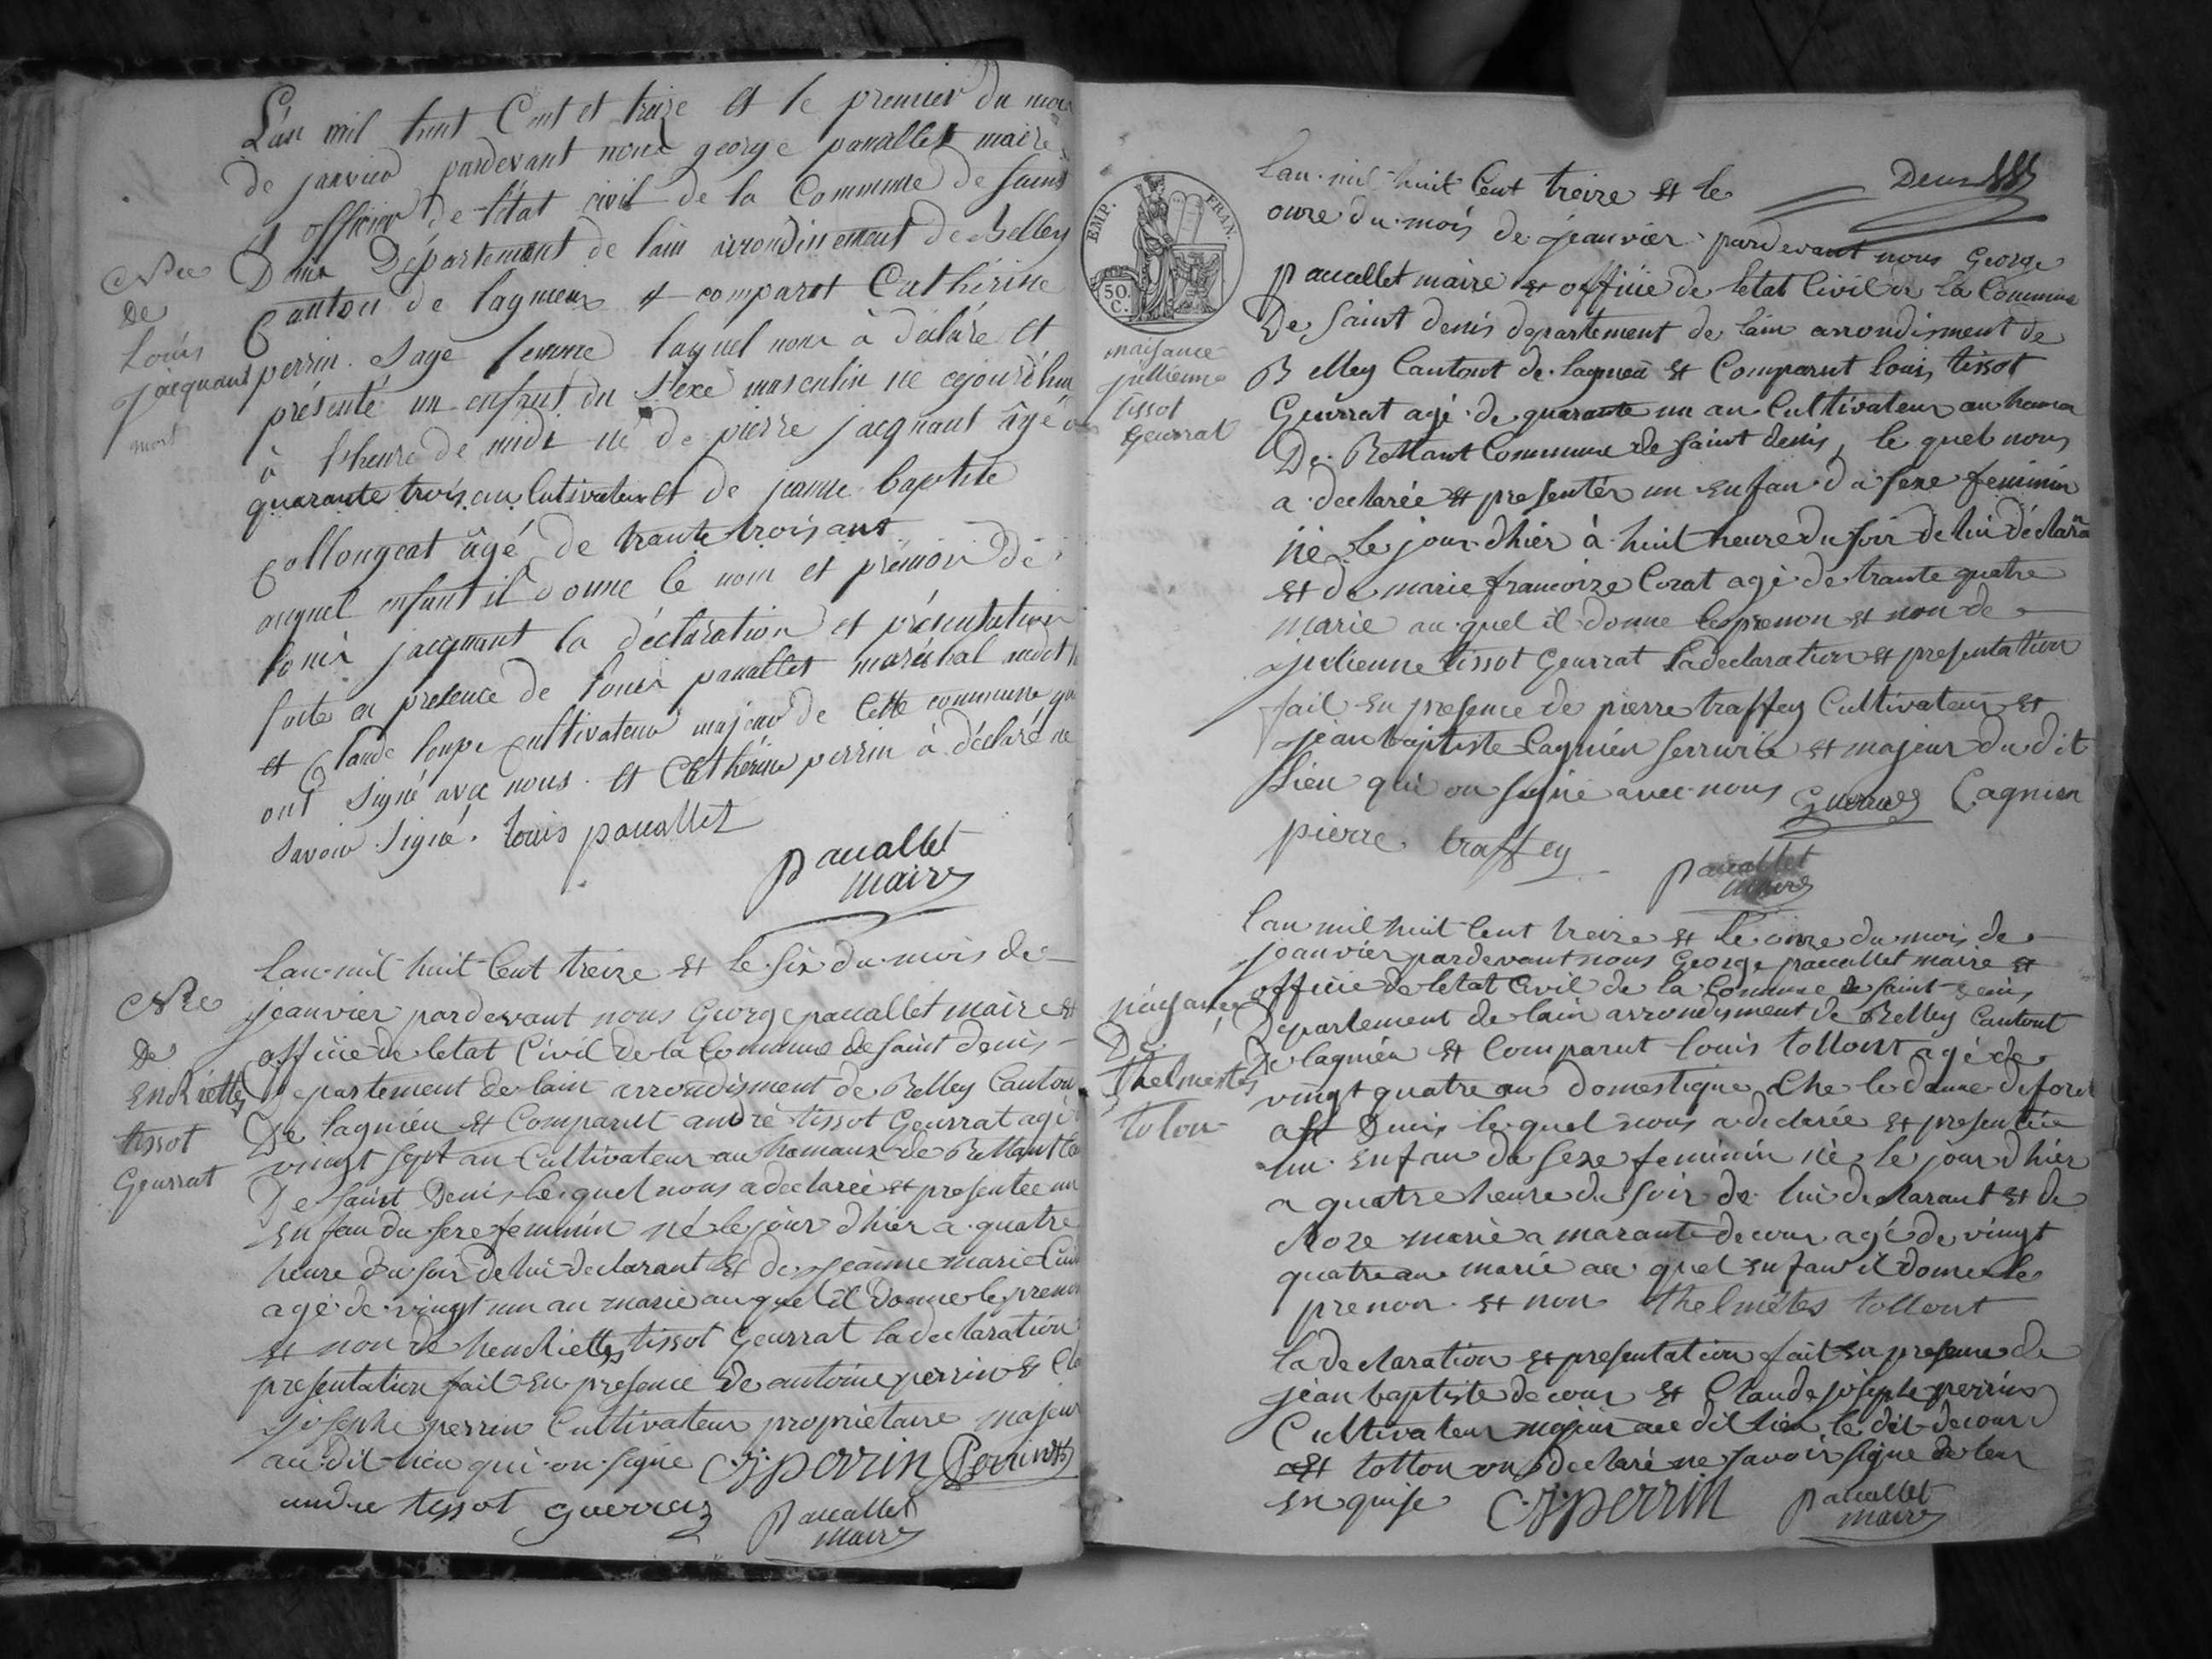 L'an mil huit Cent et treize et le premier du mois
de janvier pardevant nous george pauallet maire
et officier de l'état civil de la Commune de saint
Denis Département de lain arrondissement de Belley
Canton de lagnieux et comparet Cathérine
perrin sage femme laquel nous à déclaré et
présenté un enfant du sexe masculin né cejourd'hui
à l'heure de midi né de pierre jacquant âgé
quarante trois an Cultivateur et de jeanne baptiste
Collongeat âgé de trante trois ans
auquel enfant il donne le nom et prénom de
Louis jacquant la déclaration et présentation
faite en présence de louis pauallet maréchal
et Claude loupe Cultivateur majeur de Cette commune
ont signé avec nous et Cathérine perrin à déclaré ne
savoir signé. louis pauallet
pauallet
maire
Née
De
Louis
jacquant
mort
lan mil huit Cent treize et le six du mois de
jeanvier pardevant nous George pauallet maire et
officié de letat Civil de la Commune de saint denis
Departement de lain arrondisment de Belley Canton
De lagnieu et Comparut andré tissot Geurrat agé
vingt sept an Cultivateur au hamaux de Bettant
De saint Denis le quel nous a declarée et presentée un
enfan du sexe feminin né le jour dhier a quatre
heure du soir de lui declarant et de jeanne marie
agé de vingt un an marie auquel il donne le prenon
et non de hendriette tissot Geurrat la declaration
presentation fait en presence de antoine perrin et
josephe perrin Cultivateur proprietaire majeur
au dit lieu qui on signé CJ perrin Perrin
andre tissot guerraz pauallet
maire
Née
De
Endriette
tissot
Geurrat
Deux
lan mil huit Cent treize et le
onze du mois de jeanvier pardevant nous George
pauallet maire et officié de letat Civil de la Commune
De saint denis departement de lain arrondisment de
Belley Cantont de lagnieu et Comparut louis tissot
Geurrat agé de quarante un an Cultivateur au hamau
De Bettant Commune de saint denis, le quel nous
a declarée et presentér un enfan du sexe feminin
né le jour dhier à huit heure du soir de lui déclaran
et de marie francoize Cozat agé de trante quatre
marie au quel il donne les prenon et non de
julienne tissot Geurrat la declaration et presentation
fait en presence de pierre traffey Cultivateur et
jean baptiste Cagnien serrurié et majeur du dit
lieu qui on signé avec nous Guerraz Cagnien
pierre traffey pauallet
maire
EMP. FRAN.
50 C.
naisance
jullienne
tissot
Geurrat
lan mil huit Cent treize et le onze du mois de
jeanvier pardevant nous George pauallet maire et
officié de letat Civil de la Commune de saint denis
Departement de lain arrondisment de Belley Cantont
De lagnieu et Comparut louis tollont agé de
vingt quatre an domestique Che le dame
a st Denis le quel nous a declarée et presentée
un enfan du sexe feminin né le jour dhier
a quatre heure du soir de lui declarant et de
Roze marie amarante decour agé de vingt
quatre an marié au quel enfan il donne le
prenon et non thelmétes tollont
la declaration et presentation fait en presence de
jean baptiste decour et Claude josephe perrin
Cultivateur majeur au dit lieu le dit decour
et tollon on declaré ne savoir signe de leur
en quise CJ perrin pauallet
maire
naisance
De
thelmétes
tolon